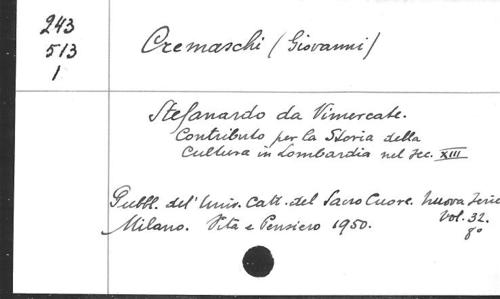 243
513
1
Cremaschi (Giovanni)
Stefanardo da Vimercate.
Contributo per la Storia della
Cultura in Lombardia nel sec. XIII
Pubbl. del' Univ. Catt. del Sacro Cuore. Nuova Serie
Vol. 32.
Milano. Vita e Pensiero 1950. 8°